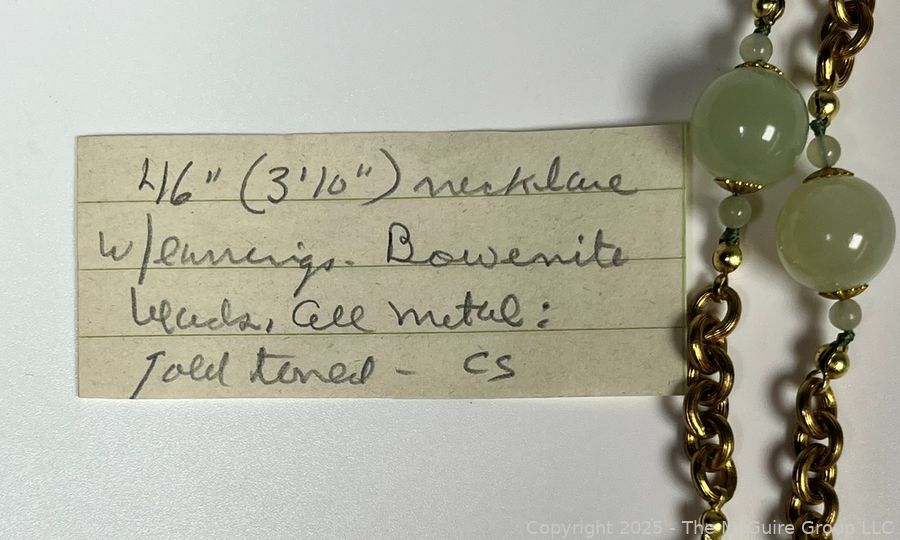 46" (3'10") necklace
w/earrings. Bowenite
beads, all metal:
gold toned - CS
Copyright 2025 - The McGuire Group LLC